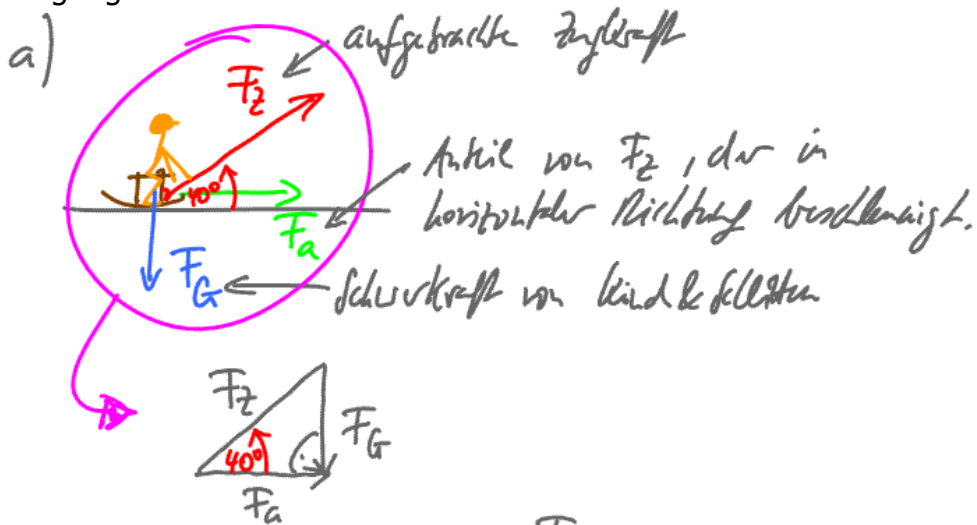 a)
aufgebrachte Zugkraft
F_Z
Anteil von F_Z, der in
40°
horizontaler Richtung beschleunigt.
F_a
F_G
Schwerkraft von Kind & Schlitten
F_Z
F_G
40°
F_a